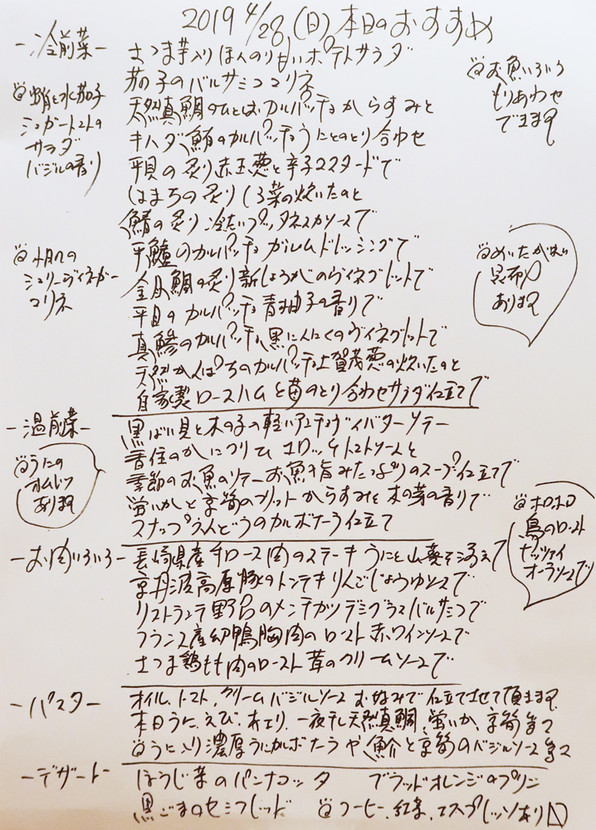 2019 4/28 (日) 本日のおすすめ
－冷前菜－
さつま芋入りほんのり甘いポテトサラダ
茄子のバルサミコマリネ
天然真鯛のカルパッチョからすみと
キハダ鮪のカルパッチョうにとのとり合わせ
平貝の炙り赤玉葱と辛子マスタードで
はまちの炙り
鯖の炙り冷たいプッタネスカソースで
平鱸のカルパッチョガルムドレッシングで
金目鯛の炙り新しょうがのヴィネグレットで
平目のカルパッチョ青柚子の香りで
真鯵のカルパッチョ黒にんにくのヴィネグレットで
天然かんぱちのカルパッチョ上賀茂葱の炊いたのと
自家製ロースハムと苺のとり合わせサラダ仕立てで
蛸と水茄子
シュガートマトの
サラダ
バジルの香り
シェリーヴィネガー
マリネ
お魚いろいろ
もりあわせ
できます
めいたがれい
昆布〆
あります
－温前菜－
黒ばい貝と木の子の軽いアンティーヴィバターソテー
香住のかにクリームコロッケトマトソースと
季節のお魚のソテーお魚の旨みたっぷりのスープ仕立てで
蛍いかと京筍のフリットからすみと木の芽の香りで
スナップえんどうのカルボナーラ仕立て
うにの
オムレツ
あります
－お肉いろいろ－
長崎県産和ロース肉のステーキうにと山葵を添えて
京丹波高原豚のトンテキりんごじょうゆソースで
リストランテ野呂のメンチカツデミグラスバルサミコで
フランス産幼鴨胸肉のロースト赤ワインソースで
さつま鶏もも肉のロースト茸のクリームソースで
ホロホロ
鳥のロースト
－パスタ－
オイル、トマト、クリームバジルソースお好みで仕立てさせて頂きます
本日うに、えび、ホタテ、一夜干し天然真鯛、蛍いか、京筍まで
うに入り濃厚うにカルボナーラや魚介と京筍のバジルソースまで
－デザート－
ほうじ茶のパンナコッタ ブラッドオレンジのプリン
黒ごまのセミフレッド コーヒー、紅茶、エスプレッソあり